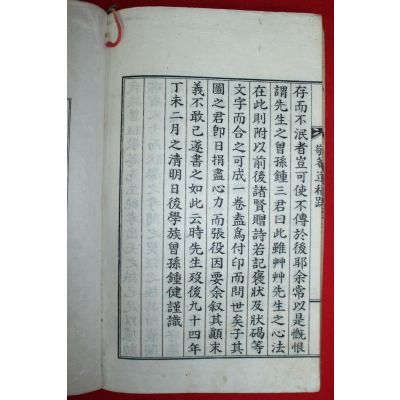 敬菴遺稿跋
存而不泯者豈可使不傳於後耶余常以是慨恨
謂先生之曾孫鍾三君曰此雖艸艸先生之心法
在此則附以前後諸賢贈詩若記褒狀及狀碣等
文字而合之可成一卷盍爲付印而問世矣子其
圖之君卽日捐盡心力而張役因要余叙其顚末
義不敢已遂書之如此云時先生歿後九十四年
丁未二月之淸明日後學族曾孫鍾健謹識